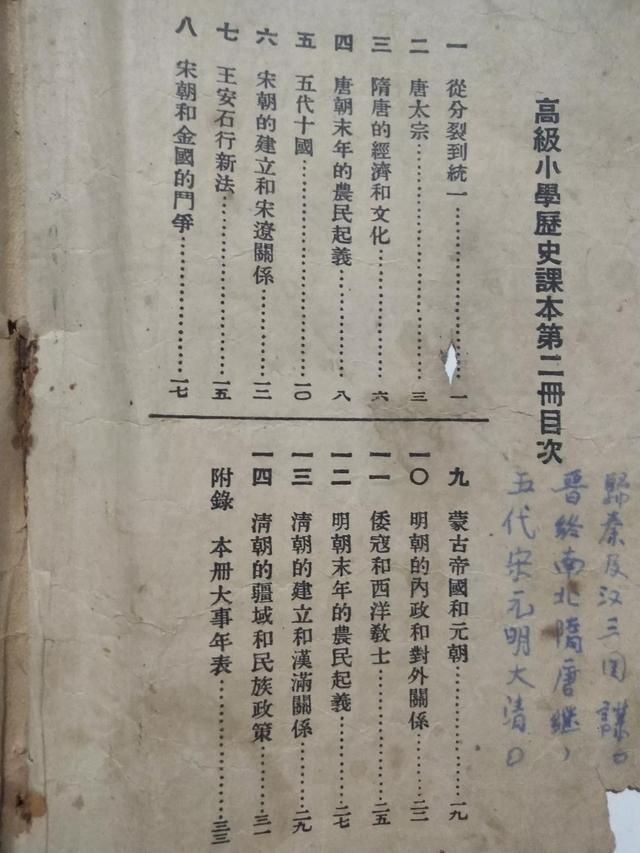 高級小學歷史課本第二冊目次
一 從分裂到統一……一
二 唐太宗……三
三 隋唐的經濟和文化……六
四 唐朝末年的農民起義……八
五 五代十國……一〇
六 宋朝的建立和宋遼關係……一二
七 王安石行新法……一五
八 宋朝和金國的鬥爭……一七
九 蒙古帝國和元朝……一九
一〇 明朝的內政和對外關係……二二
一一 倭寇和西洋教士……二五
一二 明朝末年的農民起義……二七
一三 清朝的建立和漢滿關係……二九
一四 清朝的疆域和民族政策……三一
附錄 本冊大事年表……三三
歸秦及汉三国謀。
晉終南北隋唐继，
五代宋元明大清。